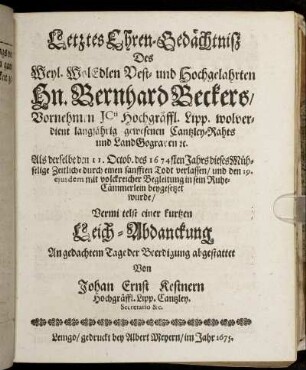 Letztes Ehren-Gedächtniß
Des
Weyl. WolEdlen Vest- und Hochgelahrten
Hn. Bernhard Beckers/
Vornehmen JCti Hochgräffl. Lipp. wolver-
dient langjährig gewesenen Cantzley-Rahts
und LandGograven ꝛc.
Als derselbe den 11. Octob. des 1674sten Jahrs dieses Müh-
selige Zeitliche durch einen sanfften Todt verlassen/ und den 19.
ejusdem mit volckreicher Begleitung in sein Ruhe-
Cämmerlein beygesetzet
wurde/
Vermittelst einer kurtzen
Leich-Abdanckung
An gedachtem Tage der Beerdigung abgestattet
Von
Johan Ernst Kestnern
Hochgräffl. Lipp. Cantzley-
Secretario &c.
Lemgo/ gedruckt bey Albert Meyern/ im Jahr 1675.